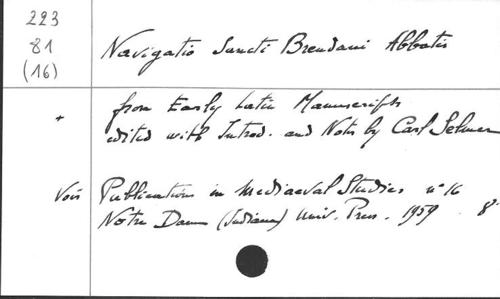 223
81
(16)
Navigatio Sancti Brendani Abbatis
+ from Early Latin Manuscripts
edited with Introd. and Notes by Carl Selmer
Voir Publications in Mediaeval Studies n° 16
Notre Dame (Indiana) Univ. Press. 1959 8°